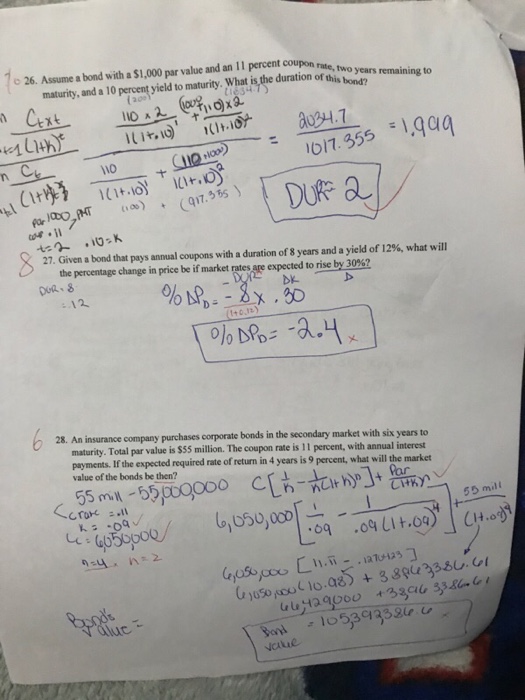 26. Assume a bond with a $1,000 par value and an 11 percent coupon rate, two years remaining to
maturity, and a 10 percent yield to maturity. What is the duration of this bond?
110 x 2
1(1+.10)¹
+
(1000+110)x2
1(1+.10)²
110
1(1+.10)¹
+
(110+1000)
1(1+.10)²
(100) + (917.355)
= 2034.7
1017.355
= 1.999
DUR= 2
par 1000, PMT
t=2 .10=K
8
27. Given a bond that pays annual coupons with a duration of 8 years and a yield of 12%, what will
the percentage change in price be if market rates are expected to rise by 30%?
DUR = 8
= .12
- DUR
% ΔPD = - 8 x .30
(1+0.12)
% ΔPD = -2.4 x
6
28. An insurance company purchases corporate bonds in the secondary market with six years to
maturity. Total par value is $55 million. The coupon rate is 11 percent, with annual interest
payments. If the expected required rate of return in 4 years is 9 percent, what will the market
value of the bonds be then?
55 mill - 55,000,000
K = .09
C = 6,050,000
n=4 n=2
Par
6,050,000 [ 1 / .09 - 1 / .09(1+.09)⁴ ] + 55 mill / (1+.09)⁴
6,050,000 (10.98) + 38963386.61
66,429,000 + 38963386.61
Bond's value =
Bond value = 105392386.6